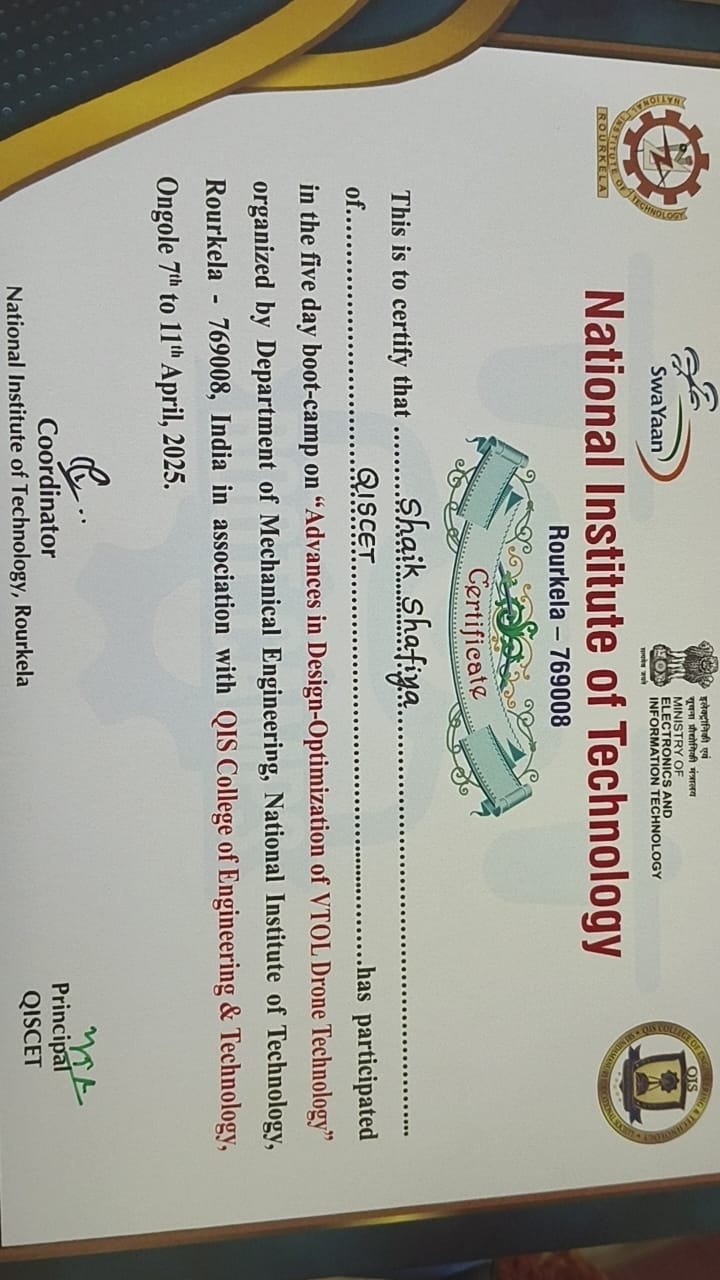 NATIONAL INSTITUTE OF TECHNOLOGY
ROURKELA
SwaYaan
इलेक्ट्रॉनिकी एवं
सूचना प्रौद्योगिकी मंत्रालय
MINISTRY OF
ELECTRONICS AND
INFORMATION TECHNOLOGY
सत्यमेव जयते
QIS
National Institute of Technology
Rourkela – 769008
Certificate
This is to certify that .........Shaik Shafiya.........
of.........QISCET.........has participated
in the five day boot-camp on “Advances in Design-Optimization of VTOL Drone Technology”
organized by Department of Mechanical Engineering, National Institute of Technology,
Rourkela - 769008, India in association with QIS College of Engineering & Technology,
Ongole 7th to 11th April, 2025.
Coordinator
National Institute of Technology, Rourkela
Principal
QISCET